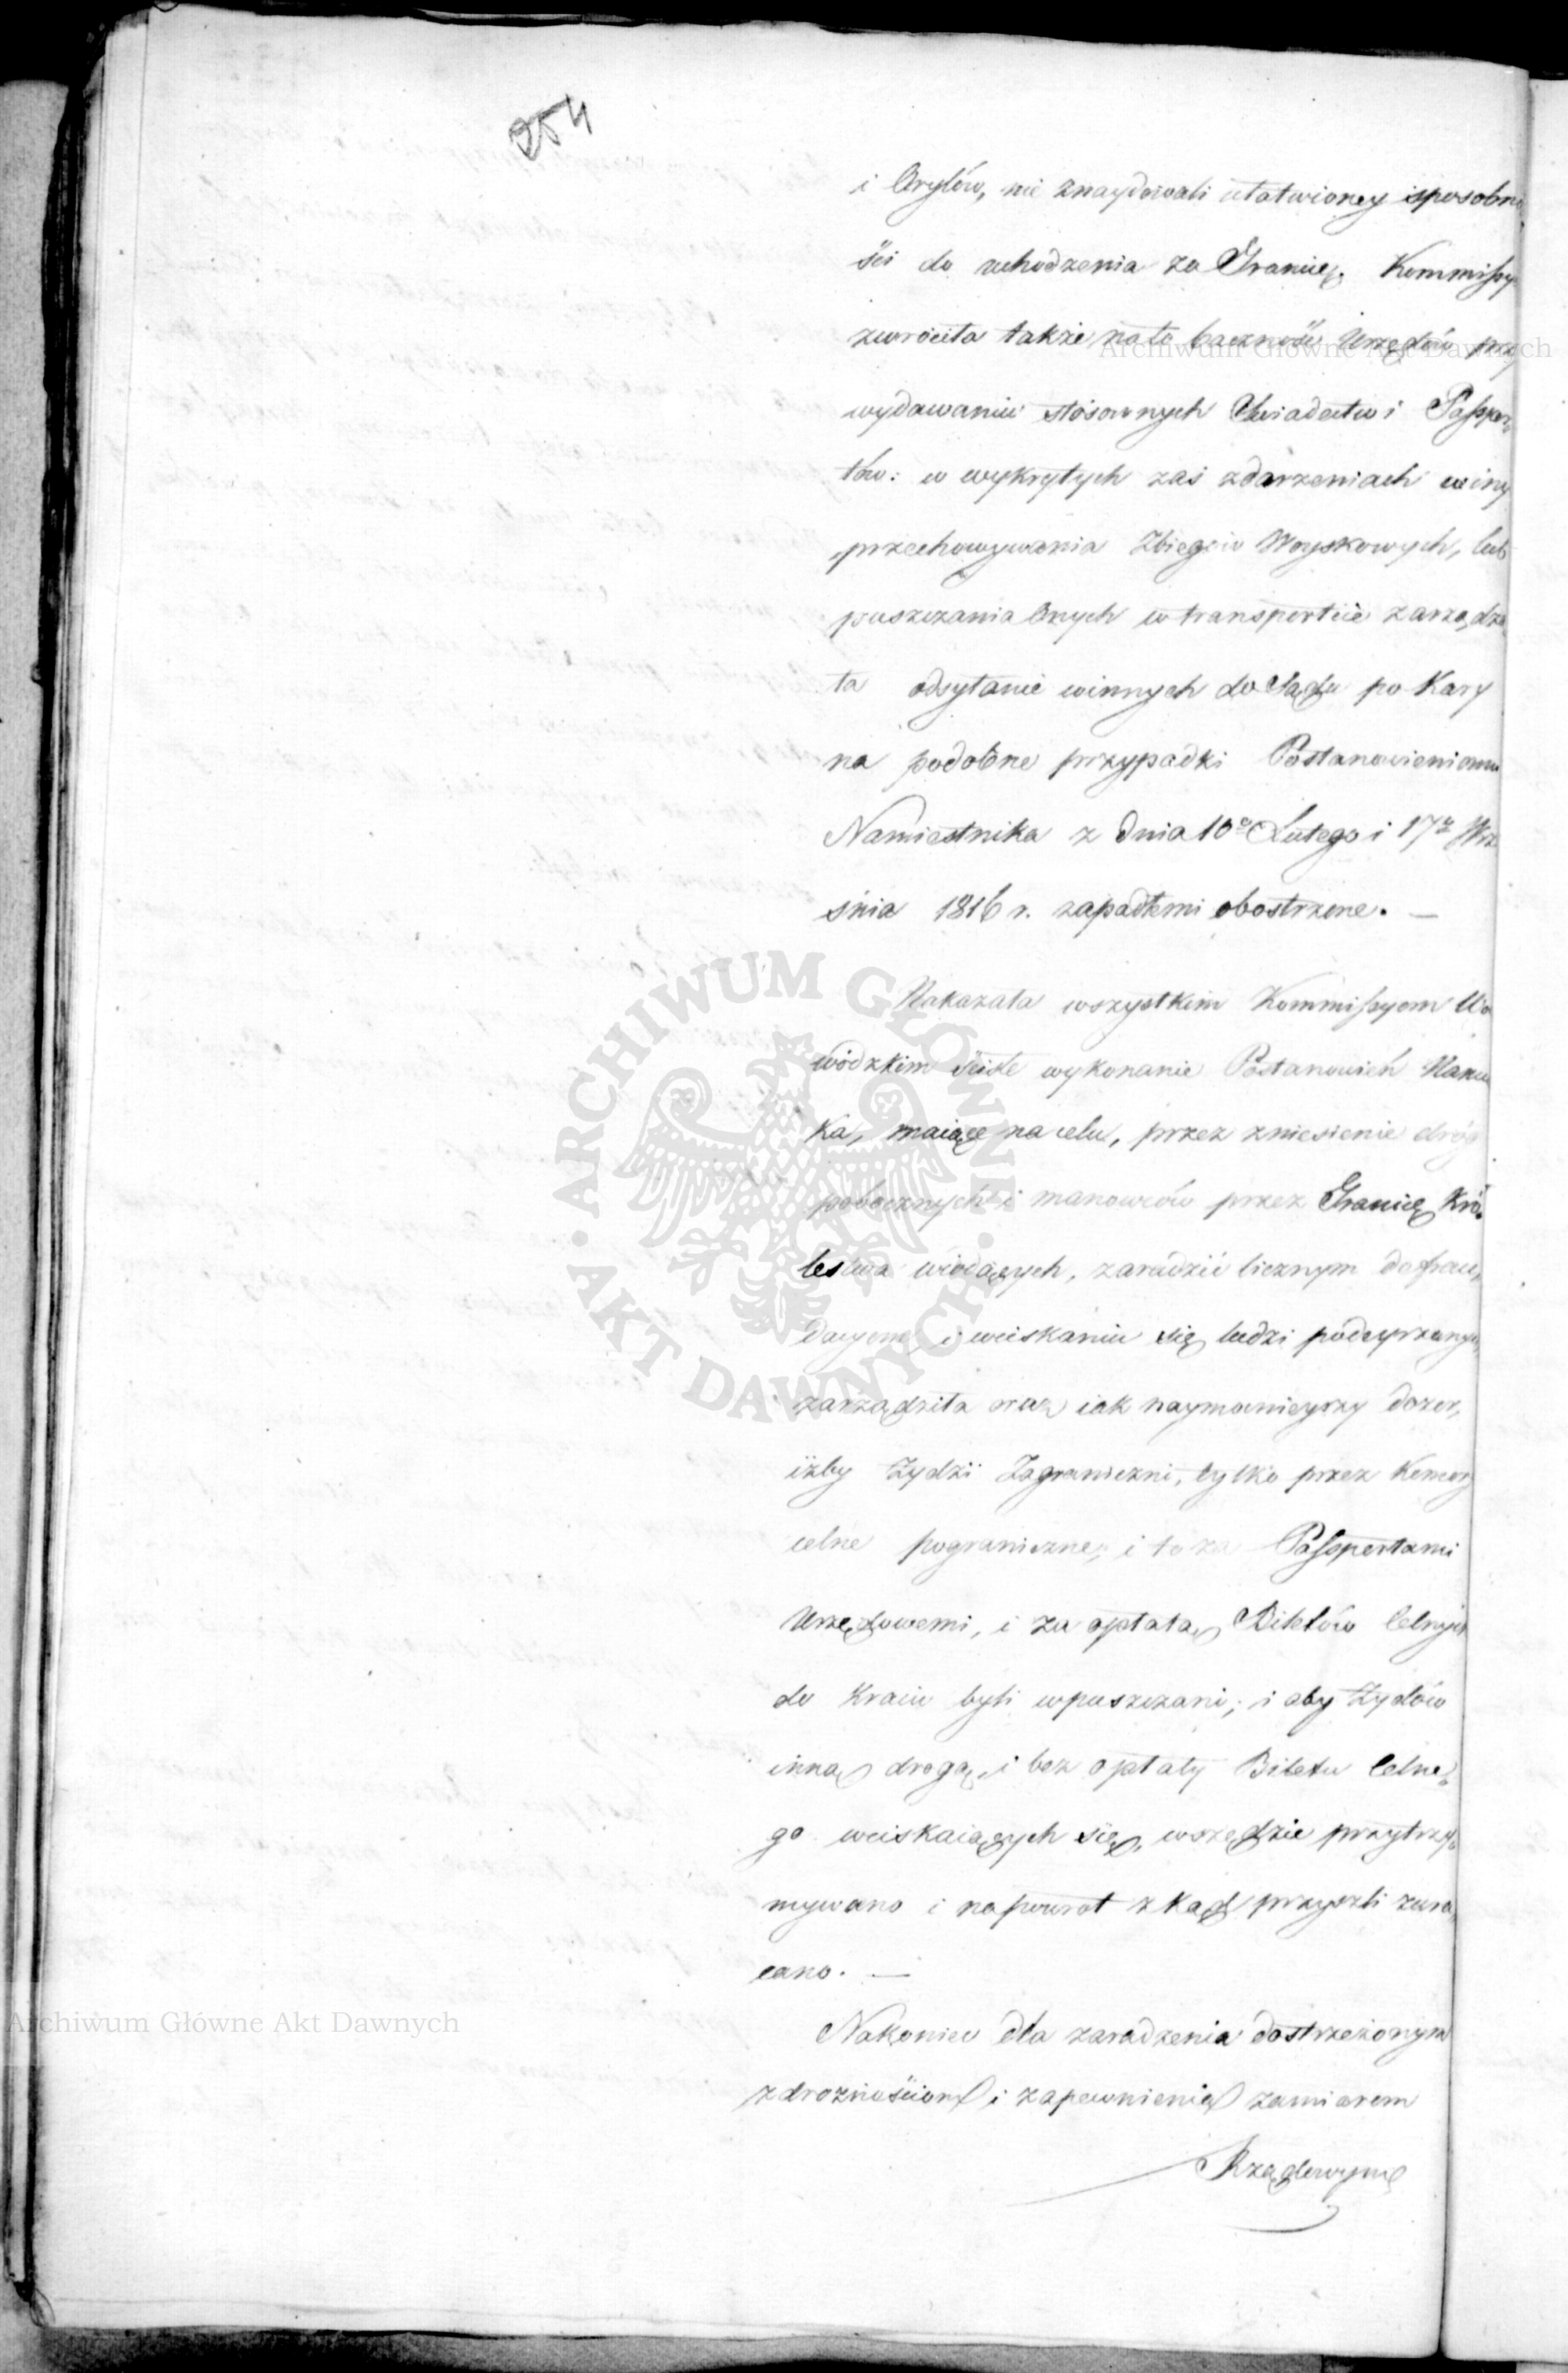 254
i Orylów, nie znaydowali ułatwioney sposobno„
ści do uchodzenia za Granicę. Kommissya
zwróciła także na to baczność Urzędów przy
wydawaniu stósownych Świadectw i Passpor„
tów: w wykrytych zaś zdarzeniach winy
przechowywania Zbiegów Woyskowych, lub
puszczania Onych w transporcie zarządza„
ła odsyłanie winnych do Sądu po Kary
na podobne przypadki Postanowieniami
Namiestnika z dnia 10º Lutego i 17º Wrze
śnia 1816 r. zapadłemi obostrzone. —
Nakazała wszystkim Kommissyom Wo
wódzkim ścisłe wykonanie Postanowień
ka, maiące na celu, przez zniesienie dróg
pobocznych i manowców przez Granicę Kró„
lestwa wiodących, zaradzić licznym defrau„
dacyom, i wciskaniu się ludzi podeyrzanych,
zarządziła oraz iak naymocnieyszy dozor,
iżby Żydzi Zagraniczni, tylko przez Komory
celne pograniczne, i to za Passportami
Urzędowemi, i za opłatą Biletów Celnych
do Kraiu byli wpuszczani; i aby Żydów
inną drogą, i bez opłaty Biletu Celne„
go wciskaiących się, wszędzie przytrzy„
mywano i napowrot z kąd przyszli zwra„
cano. —
Nakoniec dla zaradzenia dostrzeżonym
zdrożnościom i zapewnienia zamiarom
Rządowym
Archiwum Główne Akt Dawnych
Archiwum Główne Akt Dawnych
· ARCHIWUM GŁÓWNE · AKT DAWNYCH ·